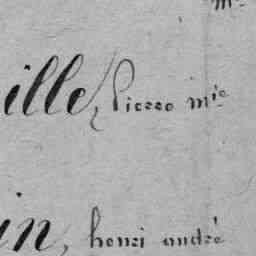 ille, Pierre mie
in, henri andré